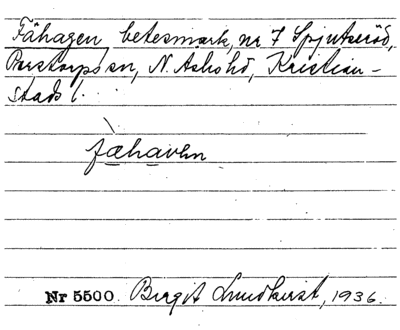 Fähagen, betesmark, nr 7 Spjutseröd,
Perstorps sn, N. Åsbo hd, Kristian-
stads l.
fæhaven
Nr 5500. Birgit Lundkvist, 1936.